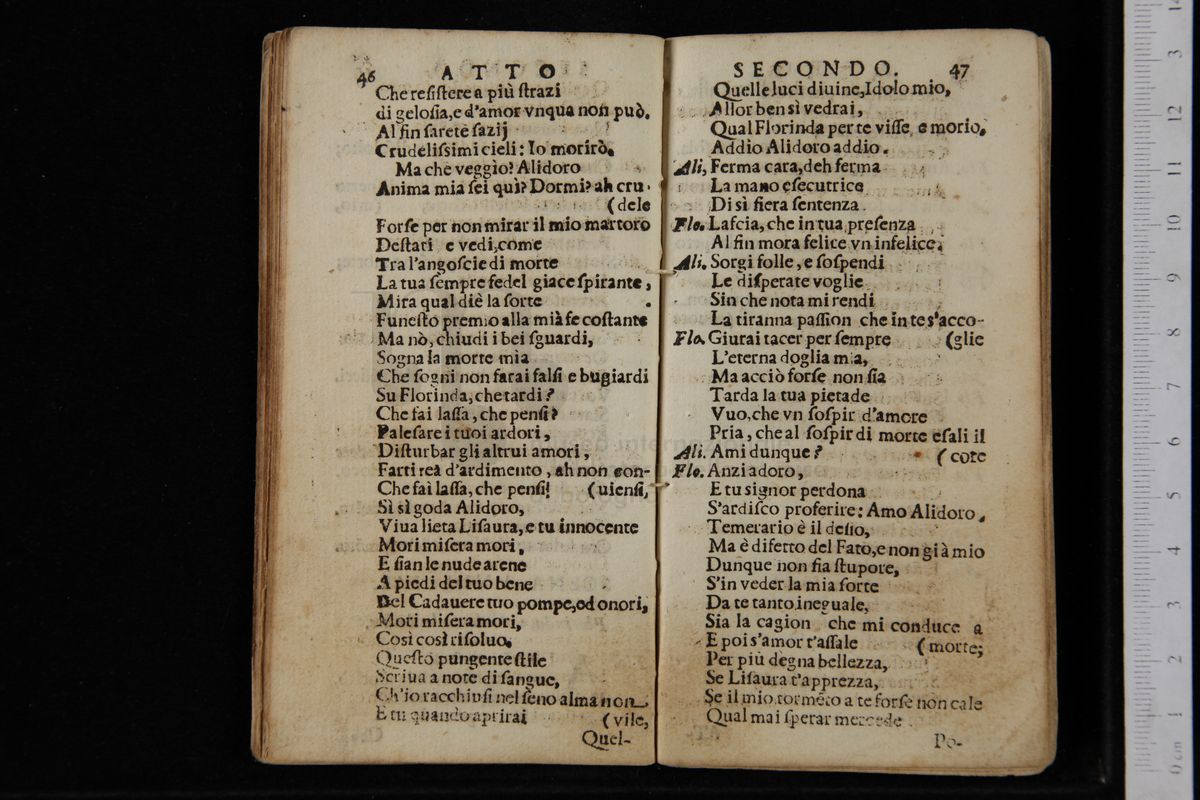 46 ATTO
Che resistere a più strazi
di gelosia, e d'amor vnqua non può.
Al fin sarete sazij
Crudelissimi cieli: Io morirò.
Ma che veggio? Alidoro
Anima mia sei quì? Dormi? ah cru-
(dele
Forse per non mirar il mio martoro
Destati e vedi, come
Tra l'angoscie di morte
La tua sempre fedel giace spirante,
Mira qual diè la sorte
Funesto premio alla mià fe costante
Ma nò, chiudi i bei sguardi,
Sogna la morte mia
Che sogni non farai falsi e bugiardi
Su Florinda, che tardi?
Che fai lassa, che pensi?
Palesare i tuoi ardori,
Disturbar gli altrui amori,
Farti rea d'ardimento, ah non con-
Che fai lassa, che pensi! (uiensi,
Sì sì goda Alidoro,
Viua lieta Lisaura, e tu innocente
Mori misera mori,
E sian le nude arene
A piedi del tuo bene
Del Cadauere tuo pompe, ed onori,
Mori misera mori,
Così così risoluo.
Questo pungente stile
Scriua a note di sangue,
Ch'io racchiusi nel seno alma non
E tu quando aprirai (vile,
Quel-
SECONDO. 47
Quelle luci diuine, Idolo mio,
Allor ben sì vedrai,
Qual Florinda per te visse, e morio.
Addio Alidoro addio.
Ali, Ferma cara, deh ferma
La mano esecutrice
Di sì fiera sentenza.
Flo. Lascia, che in tua presenza
Al fin mora felice vn infelice.
Ali. Sorgi folle, e sospendi
Le disperate voglie
Sin che nota mi rendi
La tiranna passion che in te s'acco-
Flo. Giurai tacer per sempre (glie
L'eterna doglia mia,
Ma acciò forse non sia
Tarda la tua pietade
Vuo, che vn sospir d'amore
Pria, che al sospir di morte esali il
Ali. Ami dunque? (core
Flo. Anzi adoro,
E tu signor perdona
S'ardisco proferire: Amo Alidoro.
Temerario è il desio,
Ma è difetto del Fato, e non già mio
Dunque non fia stupore,
S'in veder la mia sorte
Da te tanto ineguale,
Sia la cagion che mi conduce a
E poi s'amor t'assale (morte;
Per più degna bellezza,
Se Lisaura t'apprezza,
Se il mio torméto a te forse non cale
Qual mai sperar mercede
Po-